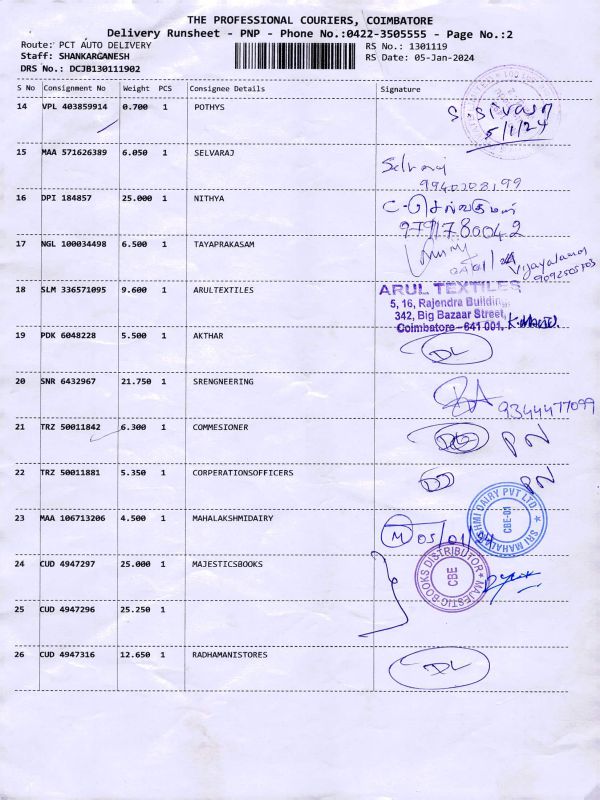 THE PROFESSIONAL COURIERS, COIMBATORE
Delivery Runsheet - PNP - Phone No.:0422-3505555 - Page No.:2
Route: PCT AUTO DELIVERY
RS No.: 1301119
Staff: SHANKARGANESH
RS Date: 05-Jan-2024
DRS No.: DCJB130111902
S No Consignment No Weight PCS Consignee Details Signature
14 VPL 403859914 0.700 1 POTHYS S. Sivasn
5/1/24
15 MAA 571626389 6.050 1 SELVARAJ Selvaraj
9940208199
16 DPI 184857 25.000 1 NITHYA
9791780042
17 NGL 100034498 6.500 1 TAYAPRAKASAM
Vijayalaxmi
9092505703
18 SLM 336571095 9.600 1 ARULTEXTILES ARUL TEXTILES
5, 16, Rajendra Building,
342, Big Bazaar Street,
Coimbatore - 641 001.
19 PDK 6048228 5.500 1 AKTHAR DL
20 SNR 6432967 21.750 1 SRENGNEERING
9344477099
21 TRZ 50011842 6.300 1 COMMESIONER PN
22 TRZ 50011881 5.350 1 CORPERATIONSOFFICERS PN
23 MAA 106713206 4.500 1 MAHALAKSHMIDAIRY M 05/01/24
SRI MAHALAKSHMI DAIRY PVT LTD
CBE-01
24 CUD 4947297 25.000 1 MAJESTICSBOOKS
MAJESTIC BOOKS DISTRIBUTOR
CBE
25 CUD 4947296 25.250 1
26 CUD 4947316 12.650 1 RADHAMANISTORES DL